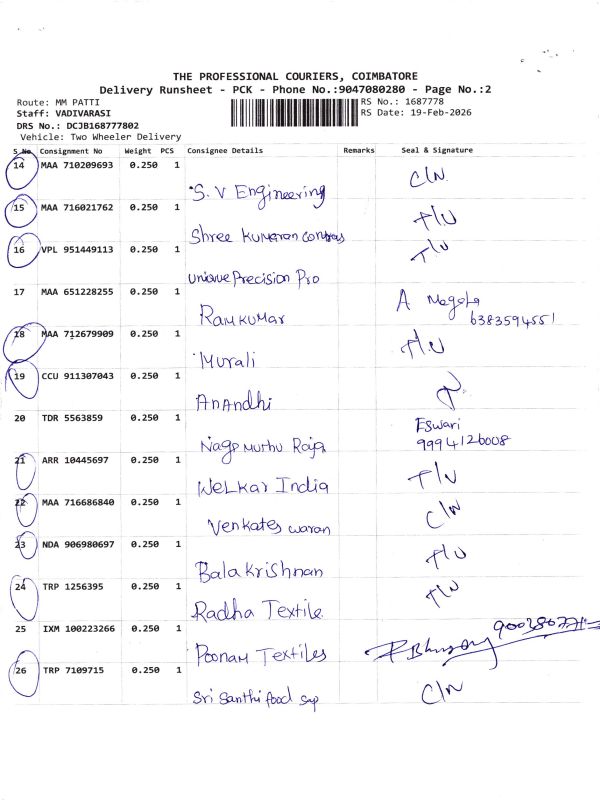 THE PROFESSIONAL COURIERS, COIMBATORE
Delivery Runsheet - PCK - Phone No.:9047080280 - Page No.:2
Route: MM PATTI RS No.: 1687778
Staff: VADIVARASI RS Date: 19-Feb-2026
DRS No.: DCJB168777802
Vehicle: Two Wheeler Delivery
S.No Consignment No Weight PCS Consignee Details Remarks Seal & Signature
14 MAA 710209693 0.250 1 S. V Engineering C/N
15 MAA 716021762 0.250 1 Shree Kumaran T/U
16 VPL 951449113 0.250 1 Unique Precision Pro T/U
17 MAA 651228255 0.250 1 Ramkumar A
6383594551
18 MAA 712679909 0.250 1 Murali T/U
19 CCU 911307043 0.250 1 Anandhi
20 TDR 5563859 0.250 1 Raja Eswari
9994126008
21 ARR 10445697 0.250 1 Welkar India T/U
22 MAA 716686840 0.250 1 Venkateswaran C/N
23 NDA 906980697 0.250 1 Balakrishnan T/U
24 TRP 1256395 0.250 1 Radha Textile T/U
25 IXM 100223266 0.250 1 Poonam Textiles
26 TRP 7109715 0.250 1 Sri Santhi food C/N